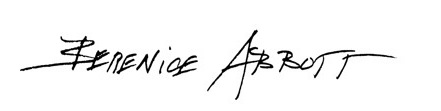 BERENICE ABBOTT